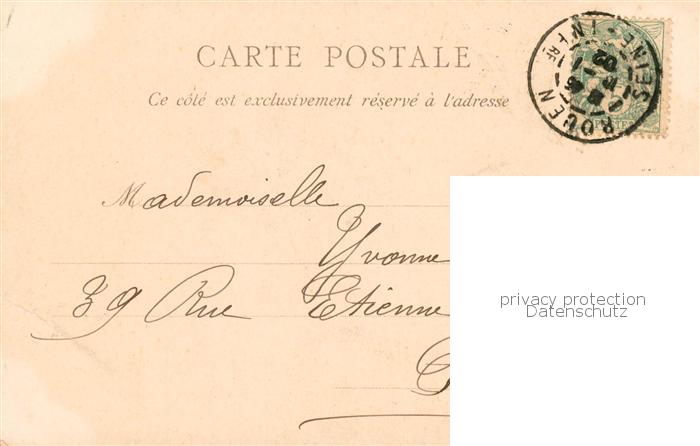 CARTE POSTALE
Ce côté est exclusivement réservé à l'adresse
ROUEN SEINE-INFRE
02
Mademoiselle
Yvonne
39 Rue Etienne
privacy protection
Datenschutz